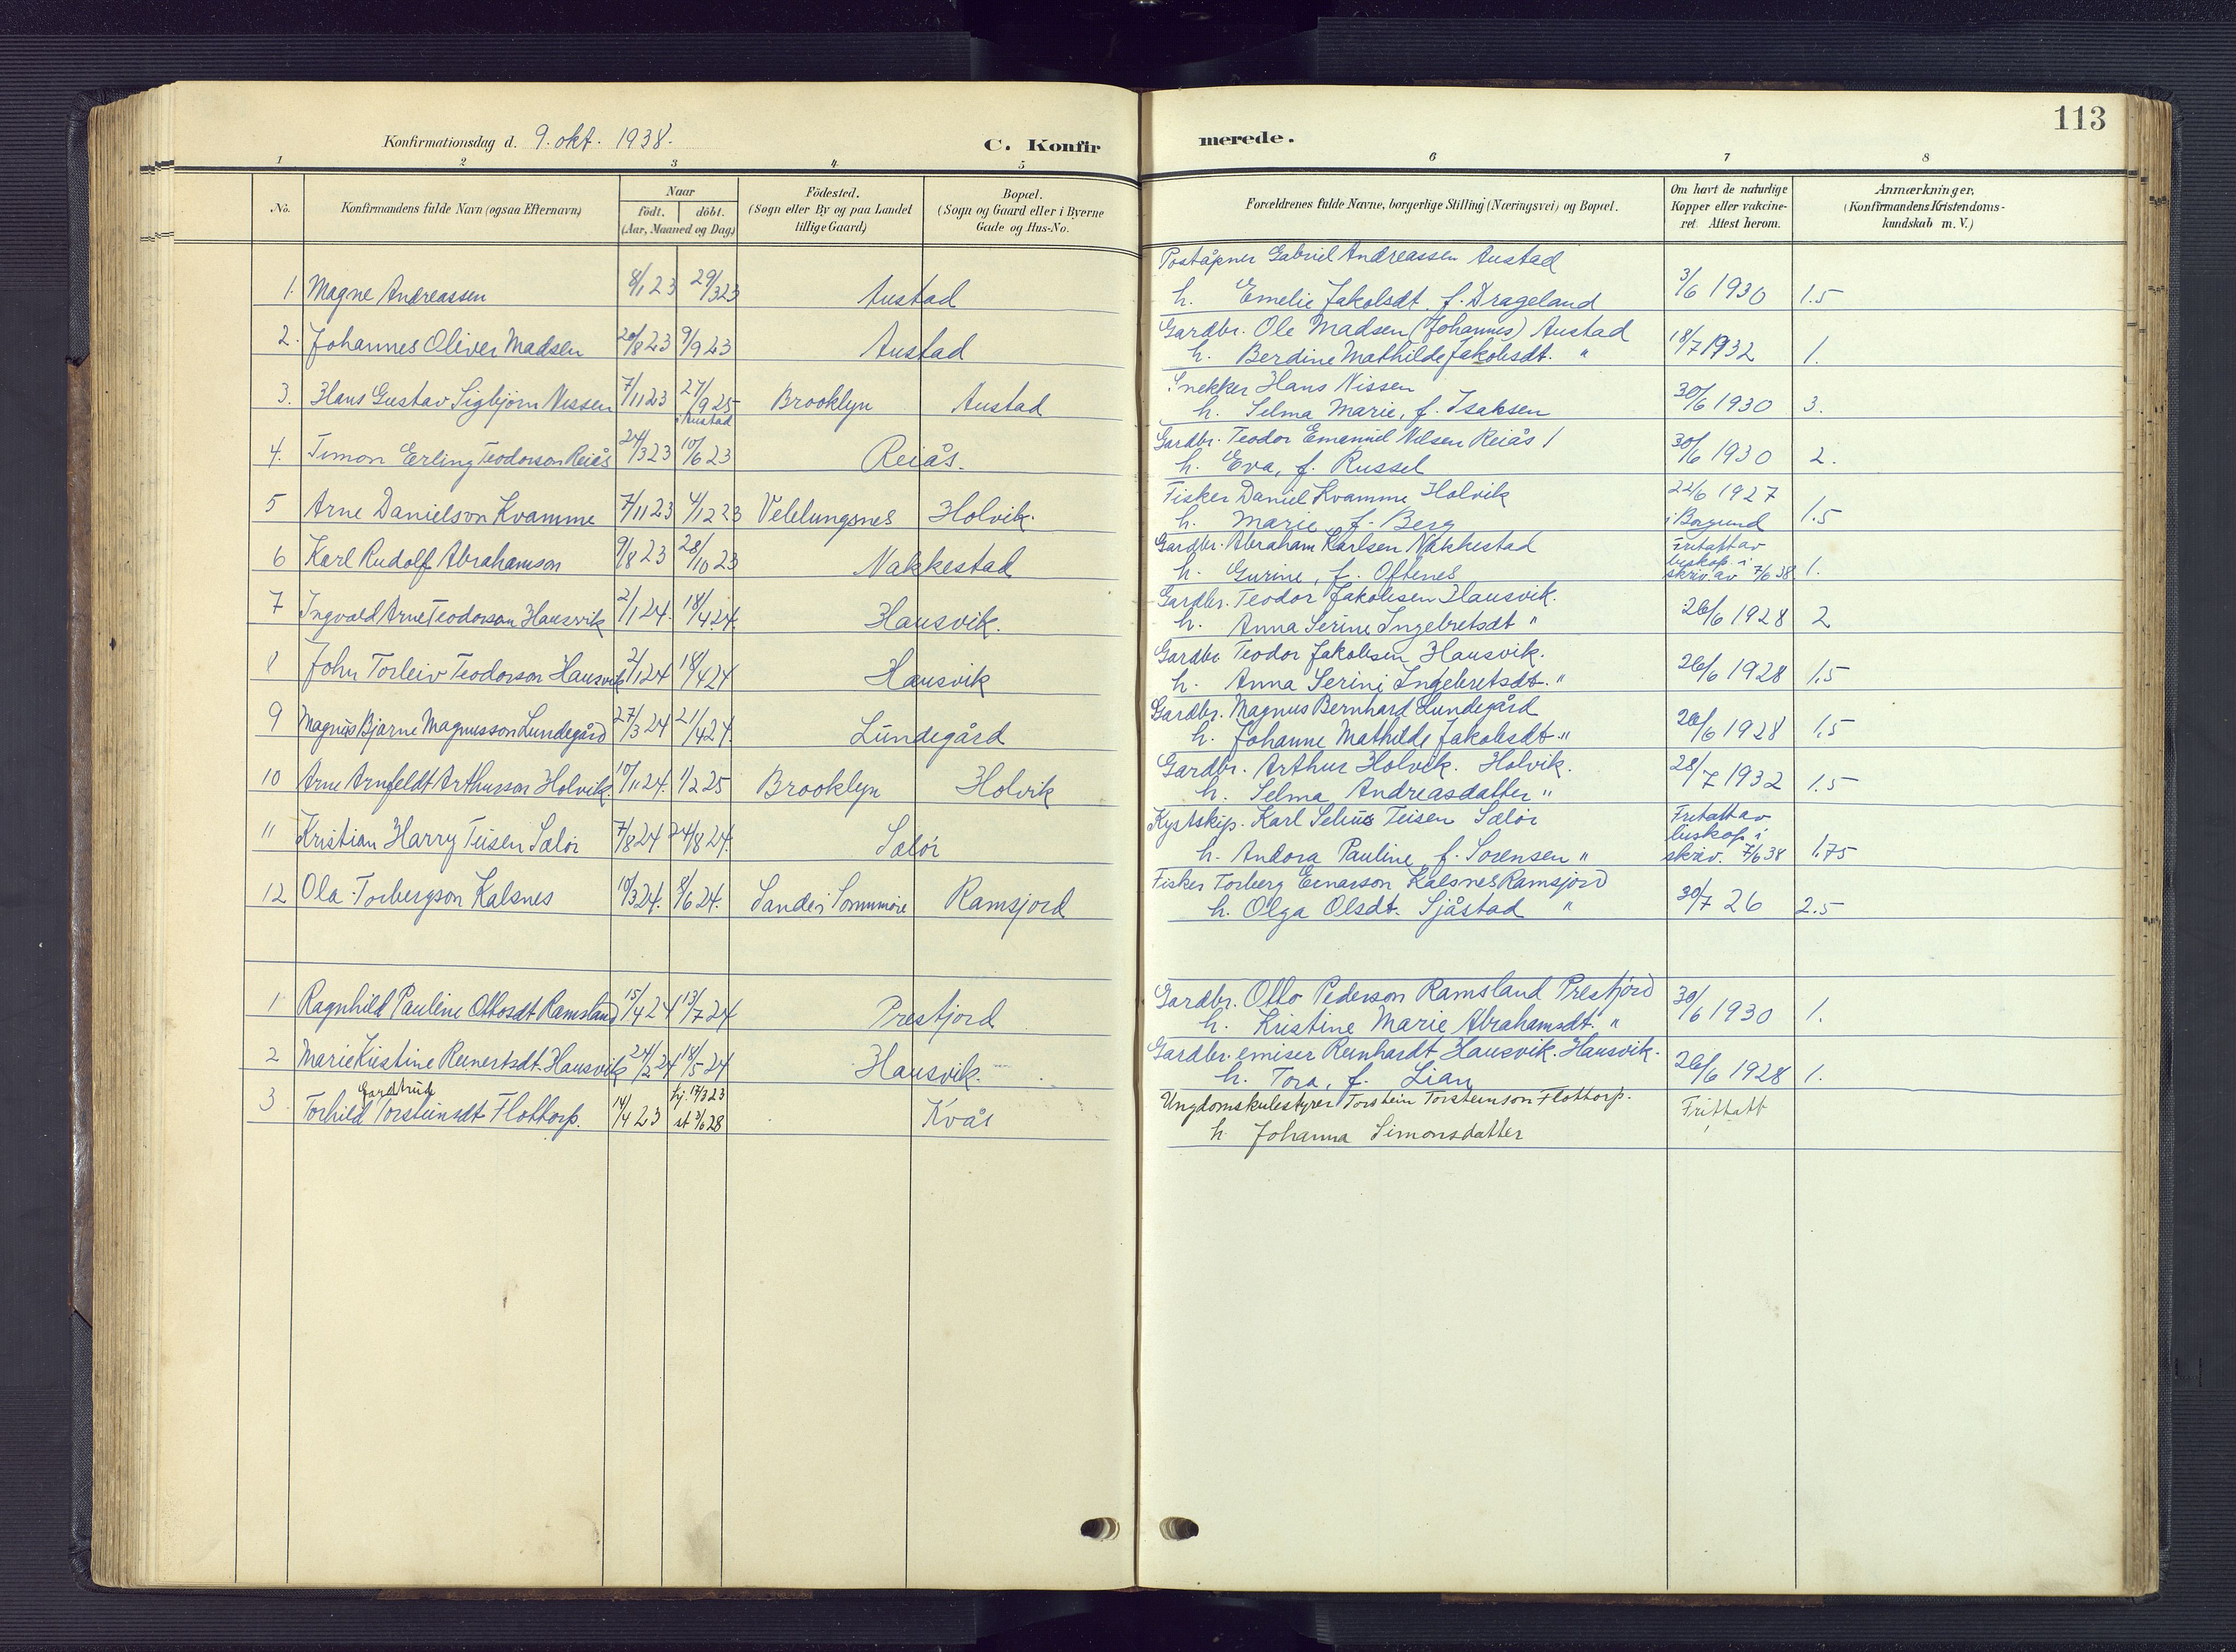 113
Konfirmationsdag d. 9. okt. 1938.
C. Konfir merede.
1 2 3 4 5 6 7 8
No.
Konfirmandens fulde Navn (ogsaa Efternavn)
Naar
födt. döbt.
(Aar, Maaned og Dag)
Födested.
(Sogn eller By og paa Landet
tillige Gaard)
Bopæl.
(Sogn og Gaard eller i Byerne
Gade og Hus-No.
Forældrenes fulde Navne, borgerlige Stilling (Næringsvei) og Bopæl.
Om havt de naturlige
Kopper eller vakcine-
ret. Attest herom.
Anmærkninger,
(Konfirmandens Kristendoms-
kundskab m. V.)
Poståpner Gabriel Andreassen Austad
1. Magne Andreassen 8/1 23 29/3 23 Austad h. Emelie Jakobsdt. f. Drageland 3/6 1930 1.5
Gardbr. Ole Madsen (Johannes) Austad
2. Johannes Oliver Madsen 20/8 23 9/9 23 Austad h. Berdine Mathilde Jakobsdt. " 18/7 1932 1.
Snekker Hans Nissen
3. Hans Gustav Sigbjørn Nissen 7/11 23 27/9 25 i Austad Brooklyn Austad h. Selma Marie, f. Isaksen 30/6 1930 3.
Gardbr. Teodor Emanuel Nilsen Reiås
4. Timon Erling Teodorson Reiås 24/3 23 10/6 23 Reiås. h. Eva, f. Russel 30/6 1930 2.
Fisker Daniel Kvamme Holvik 22/6 1927
5 Arne Danielson Kvamme 7/11 23 4/12 23 Veblungsnes Holvik. h. Marie, f. Berg i Borgund 1.5
Gardbr. Abraham Karlsen Nakkestad Fritatt av
6 Karl Rudolf Abrahamson 9/8 23 28/10 23 Nakkestad h. Gurine, f. Oftenes biskop. i skriv. av 7/6 38 1.
Gardbr. Teodor Jakobsen Hausvik.
7 Ingvald Arne Teodorson Hausvik 2/1 24. 18/4 24. Hausvik. h. Anna Serine Ingebretsdt " 26/6 1928 2
Gardbr. Teodor Jakobsen Hausvik.
8 John Torleiv Teodorson Hausvik 2/1 24 18/4 24 Hausvik h. Anna Serine Ingebretsdt. " 26/6 1928 1,5
Gardbr. Magnus Bernhard Lundegård
9 Magnus Bjarne Magnusson Lundegård 27/3 24 21/4 24. Lundegård h. Johanne Mathilde Jakobsdt. " 26/6 1928 1,5
Gardbr. Arthur Holvik. Holvik.
10 Arne Arnfeldt Arthurson Holvik. 10/11 24. 1/2 25 Brooklyn Holvik h. Selma Andreasdatter " 28/7 1932 1.5
Kystskip. Karl Selius Teisen Sælør Fritatt av
11 Kristian Harry Teisen Sælør 7/8 24 24/8 24. Sælør h. Andora Pauline, f. Sørensen " biskop. i skriv. 7/6 38 1.75
Fisker Torberg Einarson Kalsnes Ramsjord
12 Ola Torbergson Kalsnes 10/3 24. 8/6 24. Sande i Sunnmøre Ramsjord h. Olga Olsdt. Sjåstad " 30/7 26 2.5
Gardbr. Otto Pederson Ramsland Prestjord
1 Ragnhild Pauline Ottosdt Ramsland 15/4 24 13/7 24 Prestjord h. Kristine Marie Abrahamsdt. " 30/6 1930 1.
Gardbr. emiser Reinhardt Hausvik. Hausvik.
2 Marie Kristine Reinertsdt. Hausvik 24/2 24 18/5 24 Hausvik. h. Tora, f. Lian 26/6 1928 1.
Gardtrud
Ungdomskulestyrer Torstein Torsteinson Flottorp.
3 Torhild Torsteinsdt Flottorp. 14/4 23 Kvås Frittatt
h. Johanna Simonsdatter